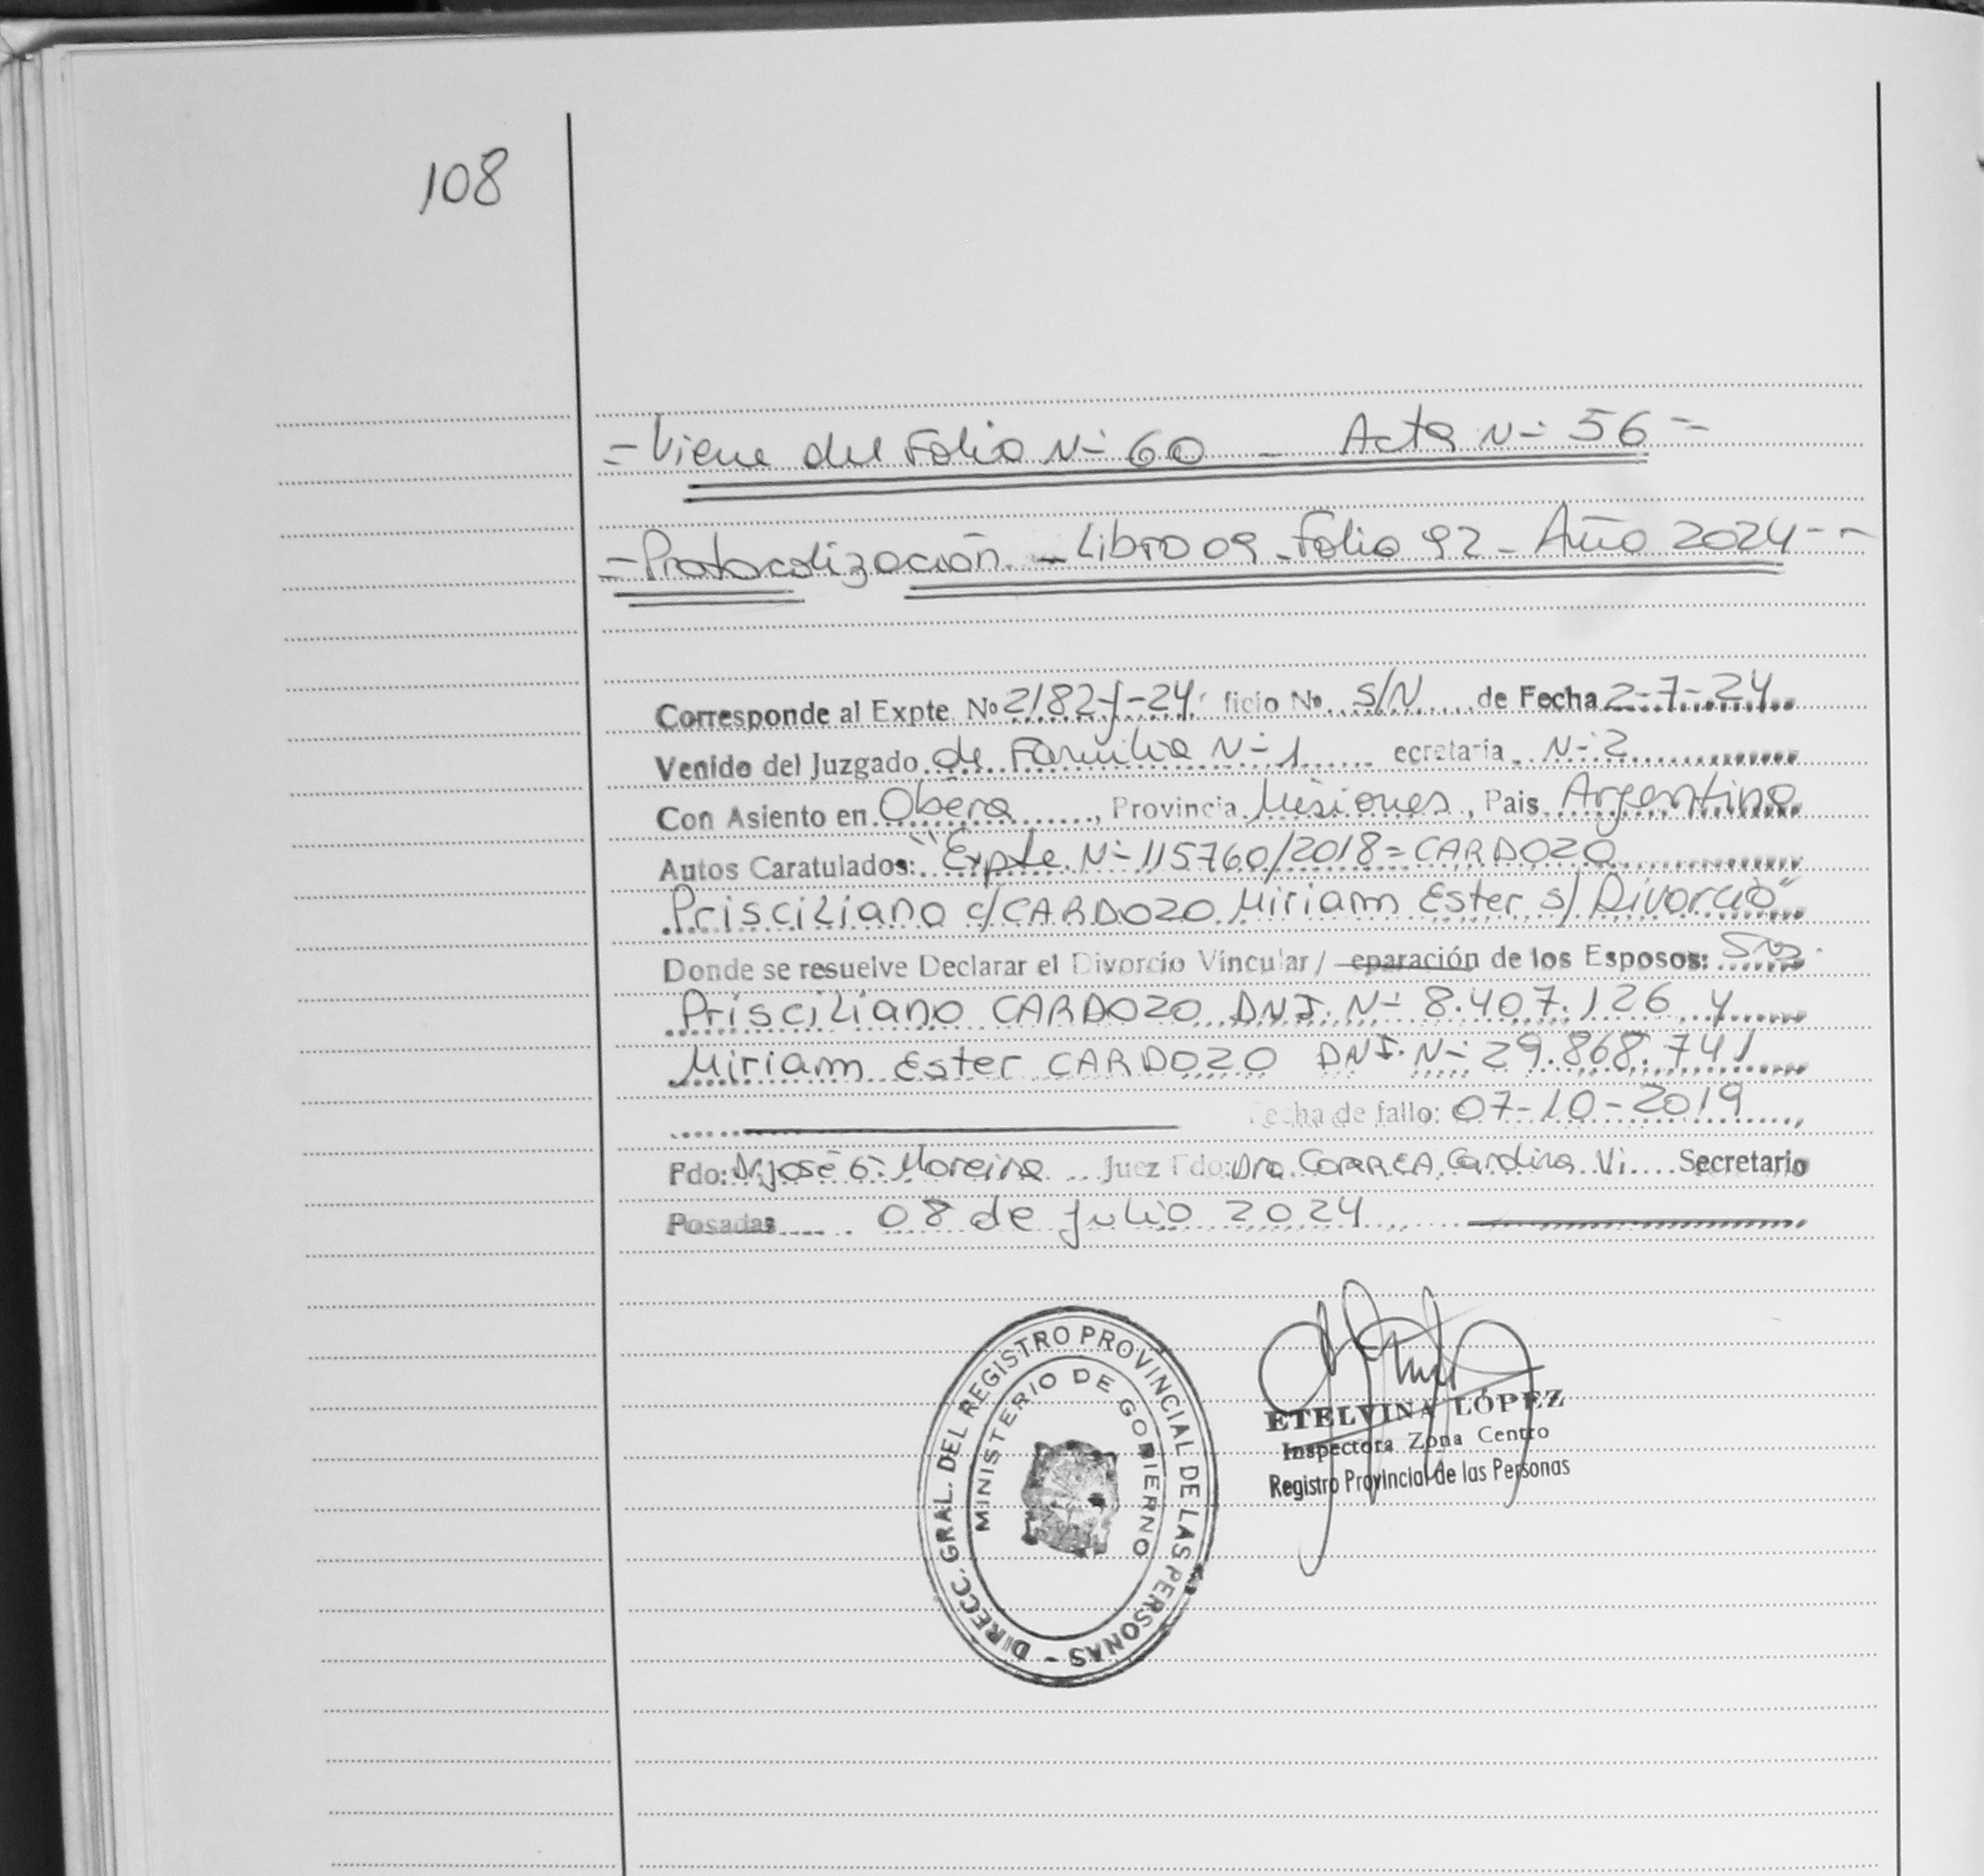 108
=Viene del Folio N- 60 - Acta N- 56=
=Protocolización.- Libro 09-Folio 92- Año 2024--
Corresponde al Expte Nº 2182-J-24 ficio Nº S/N de Fecha 2-7-24
Venido del Juzgado de Familia N-1 ecretaría N-2
Con Asiento en Obera, Provincia Misiones, Pais Argentina
Autos Caratulados: "Expte. N-115760/2018= CARDOZO
Prisciliano c/CARDOZO Miriam Ester s/ Divorcio"
Donde se resuelve Declarar el Divorcio Vincular/ eparación de los Esposos: Sres
Prisciliano CARDOZO DNI. N- 8.407.126 y
Miriam Ester CARDOZO DNI. N- 29.868.741
Fecha de fallo: 07-10-2019
Fdo: Dr José G. Moreira Juez Fdo: Dra. CORREA, Carolina Vi. Secretario
Posadas 08 de julio 2024
DIRECC. GRAL. DEL REGISTRO PROVINCIAL DE LAS PERSONAS -
MINISTERIO DE GOBIERNO
ETELVINA LÓPEZ
Inspectora Zona Centro
Registro Provincial de las Personas